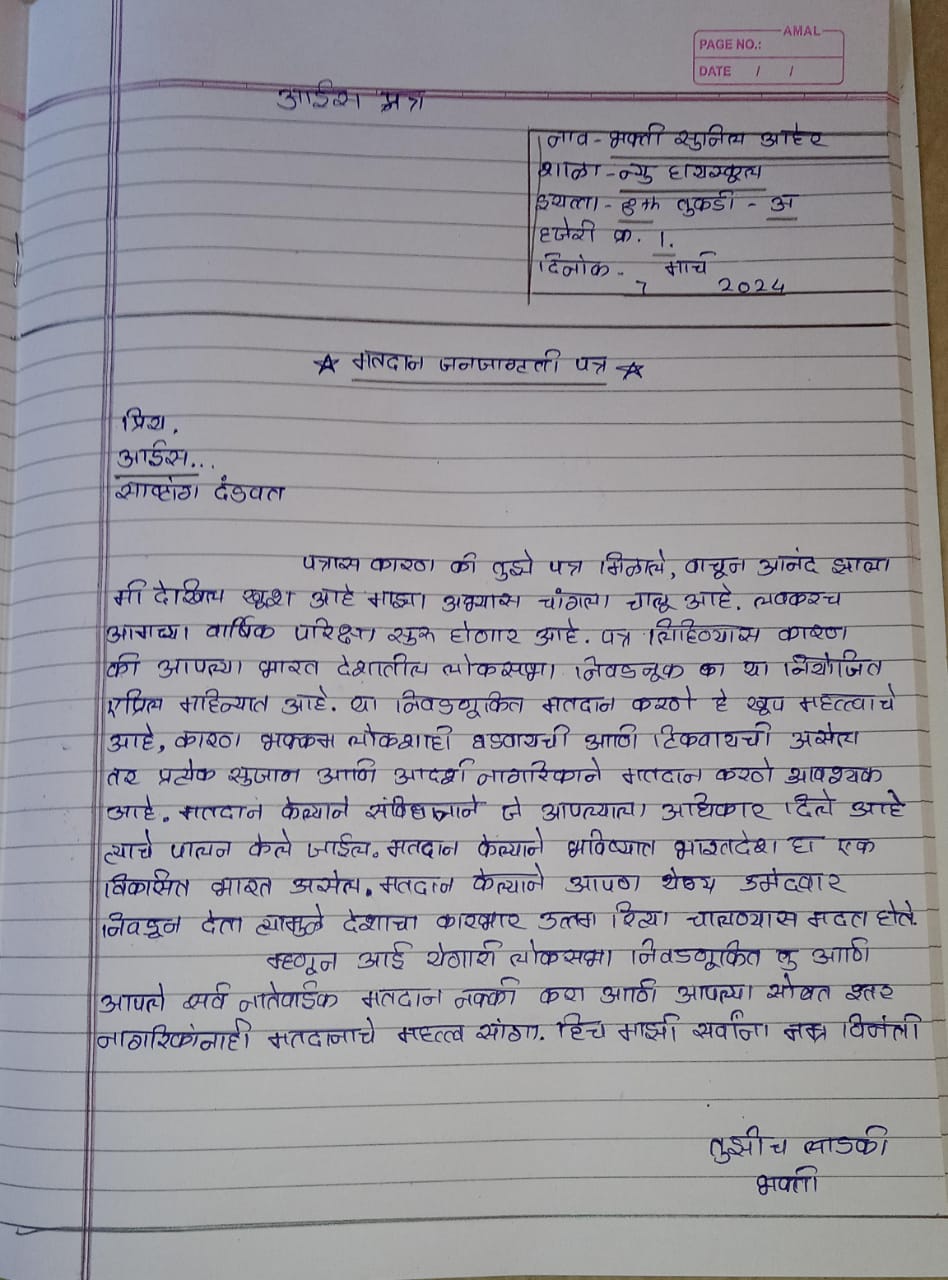 AMAL
PAGE NO.:
DATE / /
आईस पत्र
नाव - भक्ती सुनिल आहेर
शाळा - न्यु हायस्कूल
इयत्ता - ८th तुकडी - अ
हजेरी क्र. 1.
दिनांक - 7 मार्च 2024
☆ मतदान जनजागृती पत्र ☆
प्रिय,
आईस...
साष्टांग दंडवत
पत्रास कारण की तुझे पत्र मिळाले, वाचून आनंद झाला
मी देखिल खूश आहे माझा अभ्यास चांगला चालू आहे. लवकरच
आमच्या वार्षिक परिक्षा सुरू होणार आहे. पत्र लिहिण्यास कारण
की आपल्या भारत देशातील लोकसभा निवडनूक का या नियोजित
एप्रिल महिन्यात आहे. या निवडणूकित मतदान करणे हे खूप महत्त्वाचे
आहे, कारण भक्कम लोकशाही घडवायची आणि टिकवायची असेल
तर प्रत्येक सुजान आणि आदर्श नागरिकाने मतदान करणे आवश्यक
आहे. मतदान केल्याने संविधानाने जे आपल्याला अधिकार दिले आहे
त्याचे पालन केले जाईल. मतदान केल्याने भविष्यात भारतदेश हा एक
विकासित भारत असेल. मतदान केल्याने आपण योग्य उमेदवार
निवडून देता त्यामुळे देशाचा कारभार उत्तम रित्या चालण्यास मदत होते.
म्हणून आई येणारी लोकसभा निवडणूकित तु आणि
आपले सर्व नातेवाईक मतदान नक्की करा आणि आपल्या सोबत इतर
नागरिकांनाही मतदानाचे महत्व सांगा. हिच माझी सर्वांना नम्र विनंती
तुझीच लाडकी
भक्ती